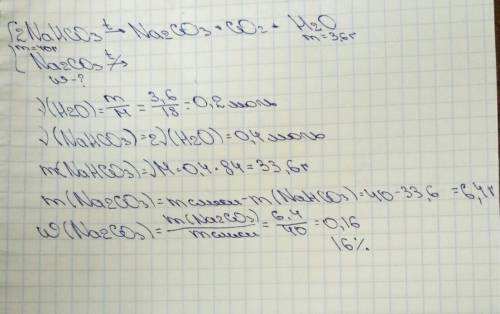 2NaHCO3 t→ Na2CO3 + CO2 + H2O
m=40г m=3,6г
Na2CO3 t↛
ω-?
ν(H2O)=m/M=3,6/18=0,2моль
ν(NaHCO3)=2ν(H2O)=0,4моль
m(NaHCO3)=νM=0,4·84=33,6г
m(Na2CO3)=mсмеси-m(NaHCO3)=40-33,6=6,4г
ω(Na2CO3)=m(Na2CO3)/mсмеси=6,4/40=0,16
16%